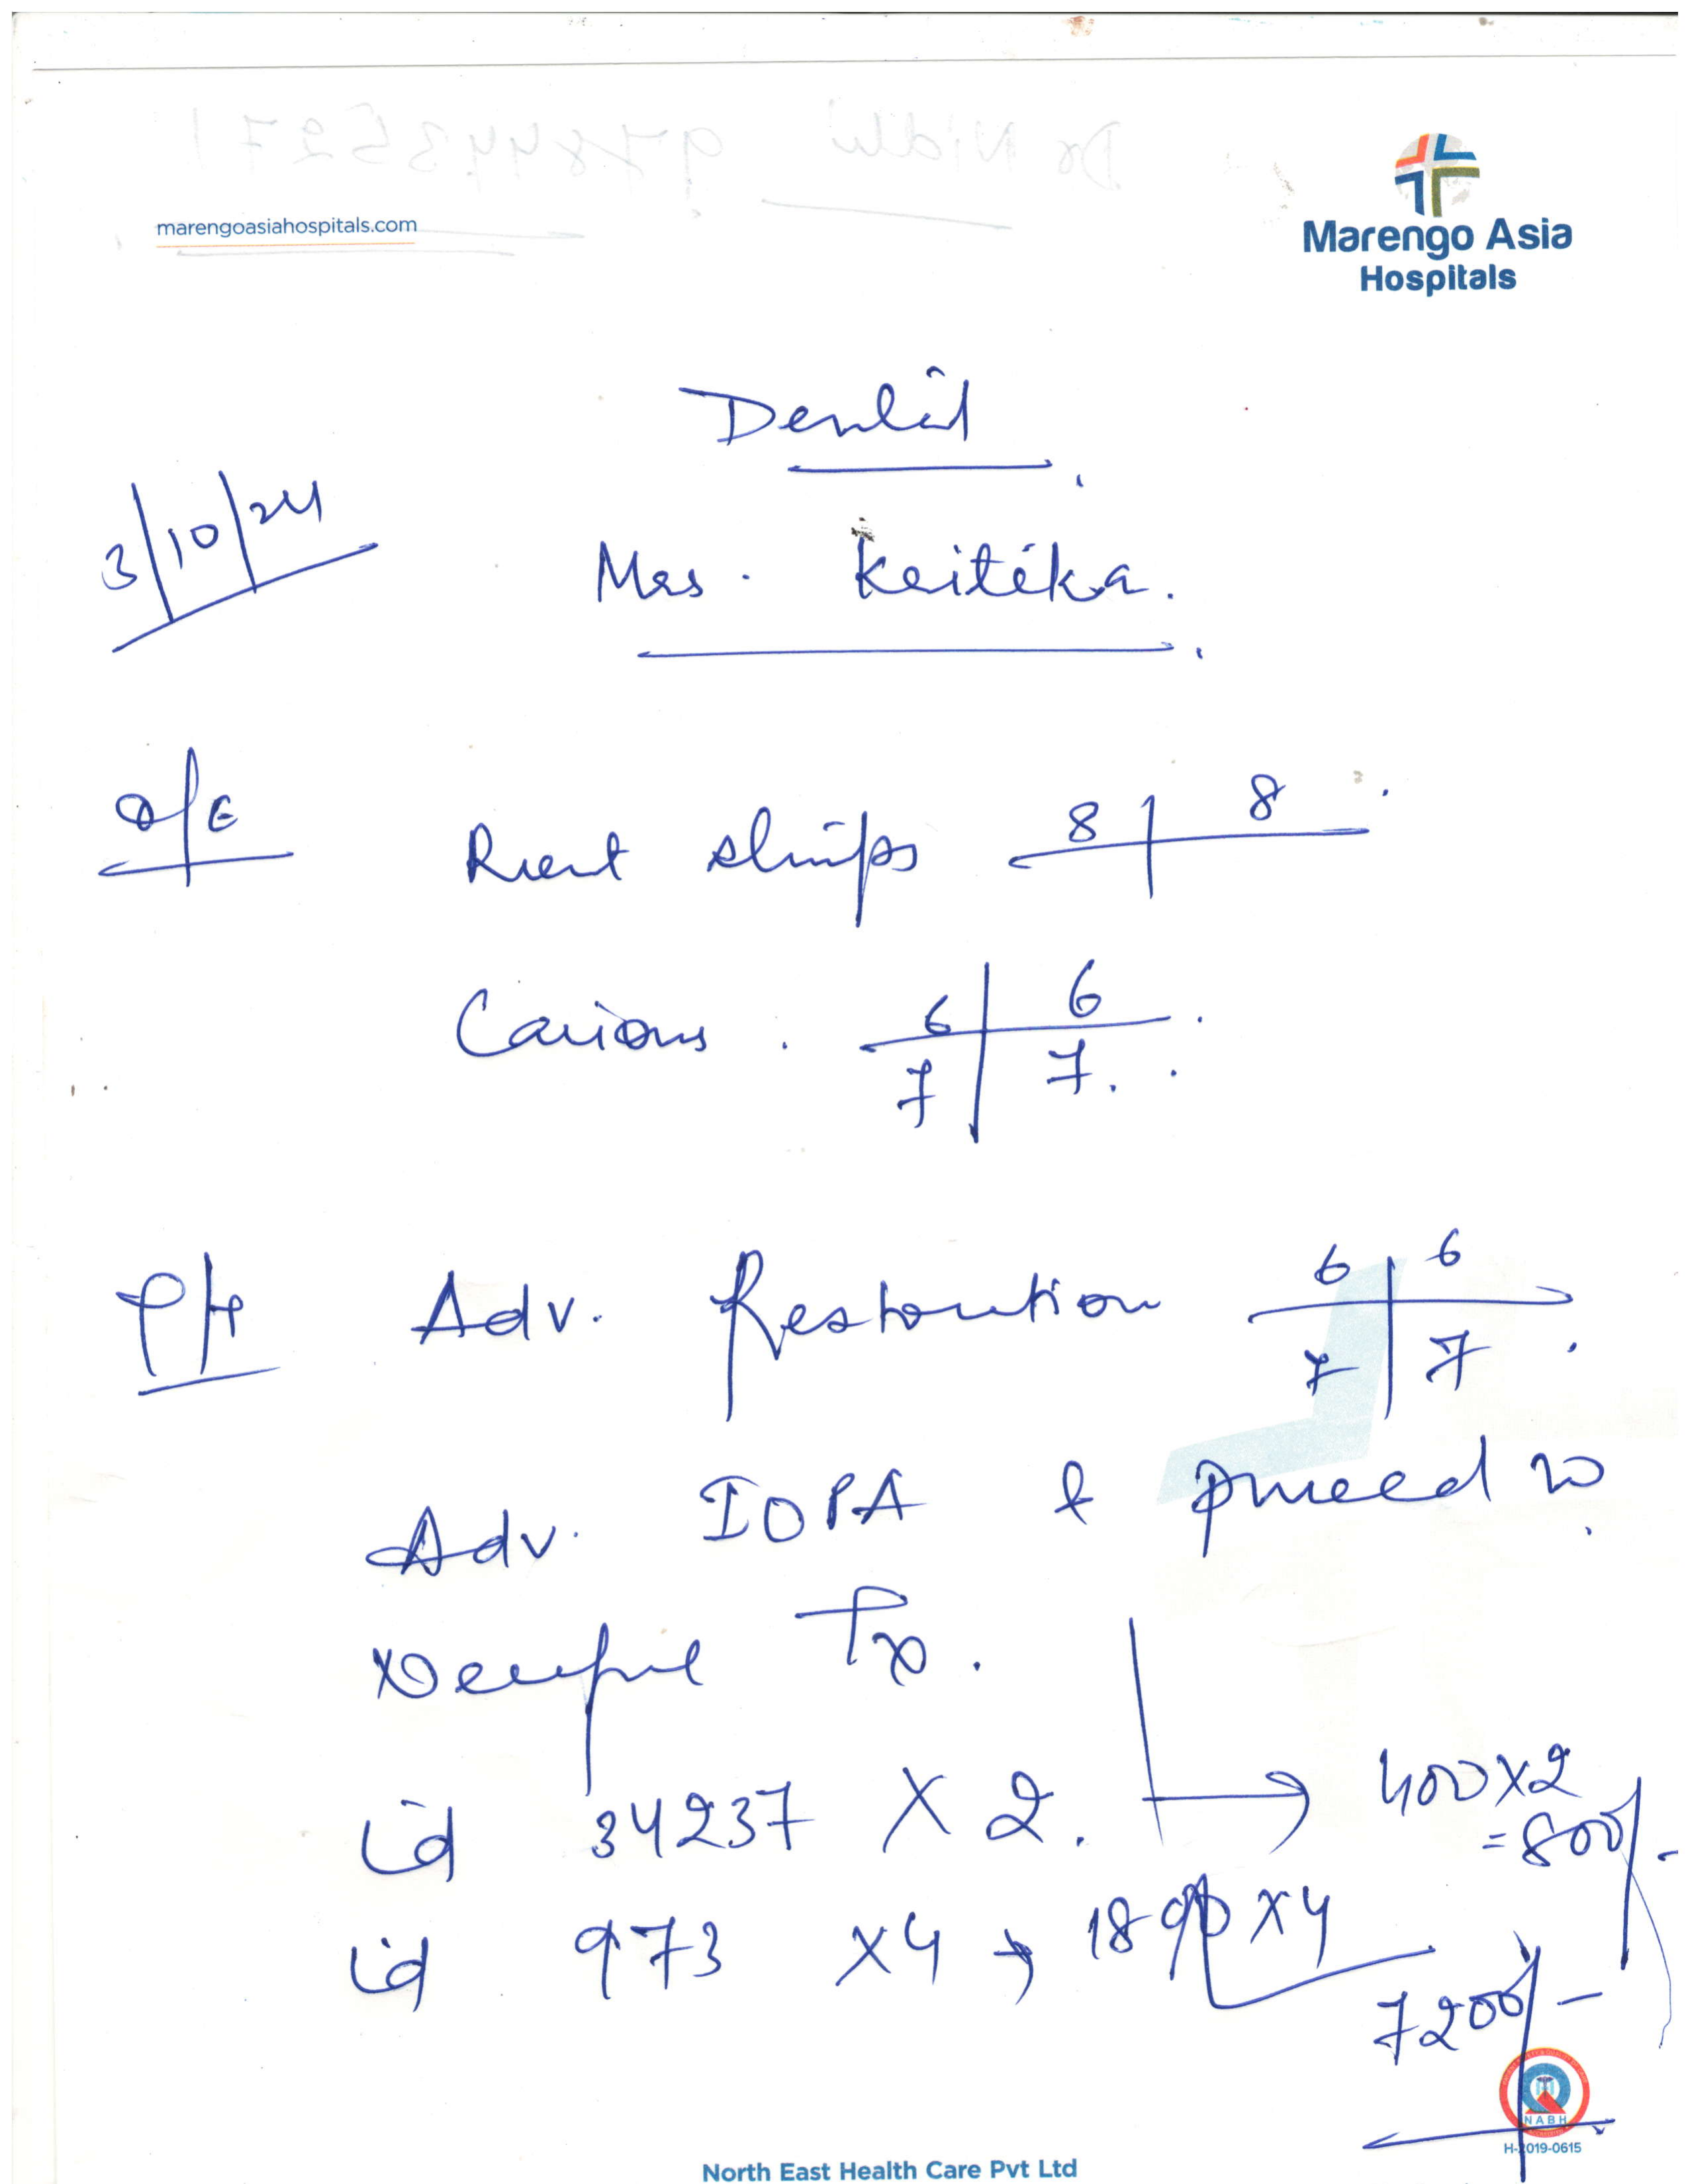 Dr Nidhi 9784435271
marengoasiahospitals.com
Marengo Asia
Hospitals
Dental
3/10/24
Mrs. Kritika.
O/E
Root stumps 8 | 8
Carious. 6 | 6
7 | 7.
Adv. Restoration 6 | 6
7 | 7.
Adv. IOPA & proceed to
Tx.
id 34237 X 2. → 400 x 2
= 800/-
id 973 x 4 → x 4
7200/-
NABH
H-2019-0615
North East Health Care Pvt Ltd